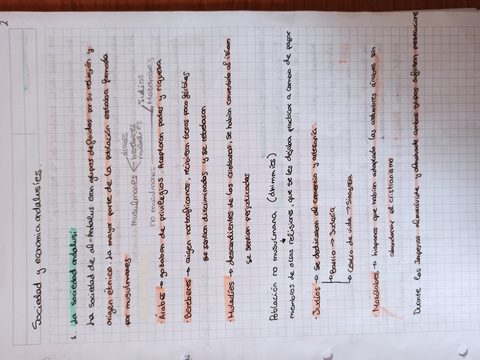 2
Sociedad y economía andalusíes
1. La sociedad andalusí:
La sociedad de al-Andalus eran grupos definidos por su religión y
origen étnico. La mayor parte de la población estaba formada
por musulmanes
Musulmanes árabes
bereberes
muladíes
no musulmanes Judíos
Mozárabes
· Árabes → gozaban de privilegios. Acapararon poder y riqueza
· Bereberes → origen norteafricanos, recibieron tierras poco fértiles
se sentían discriminados y se rebelaron
· Muladíes → descendientes de los cristianos, se habían convertido al islam
se sentían perjudicados
Población no musulmana (dhimmíes)
miembros de otras religiones, que se les dejaba practicar a cambio de pagar
· Judíos → se dedicaban al comercio y artesanía.
→ Barrio → Judería
→ centro de vida → Sinagoga
· Mozárabes → hispanos que habían adoptado las costumbres árabes sin
abandonar el cristianismo
Durante los imperios almorávide y almohade ambos grupos sufrieron persecuciones